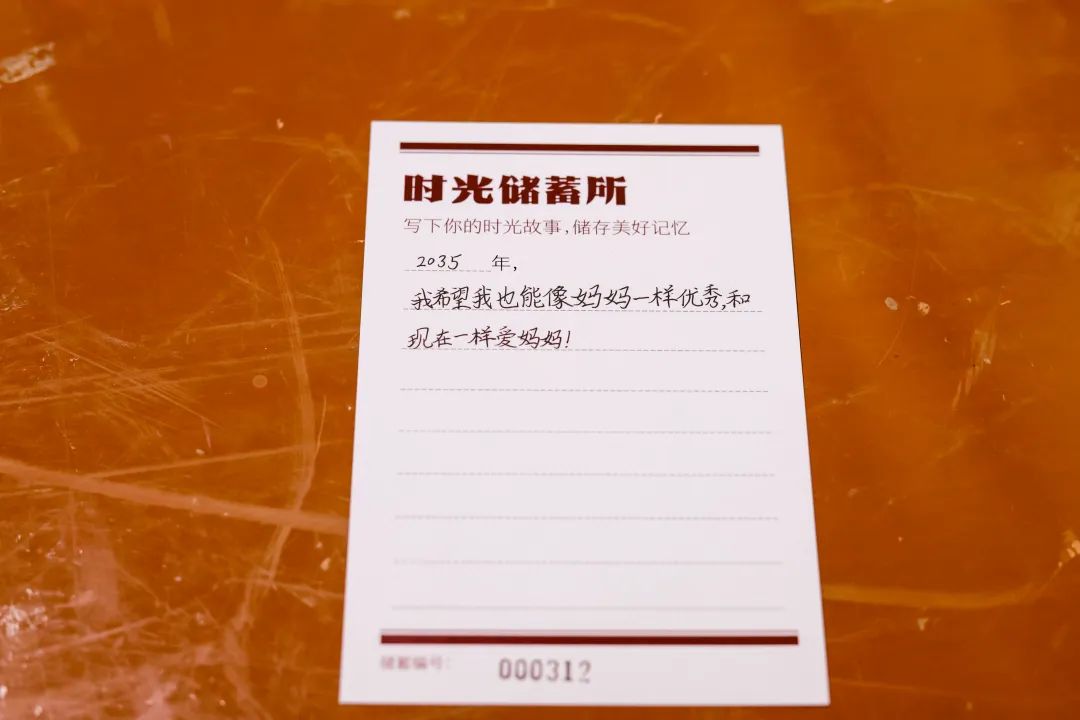 时光储蓄所
写下你的时光故事,储存美好记忆
2035 年,
我希望我也能像妈妈一样优秀,和
现在一样爱妈妈!
储蓄编号: 000312